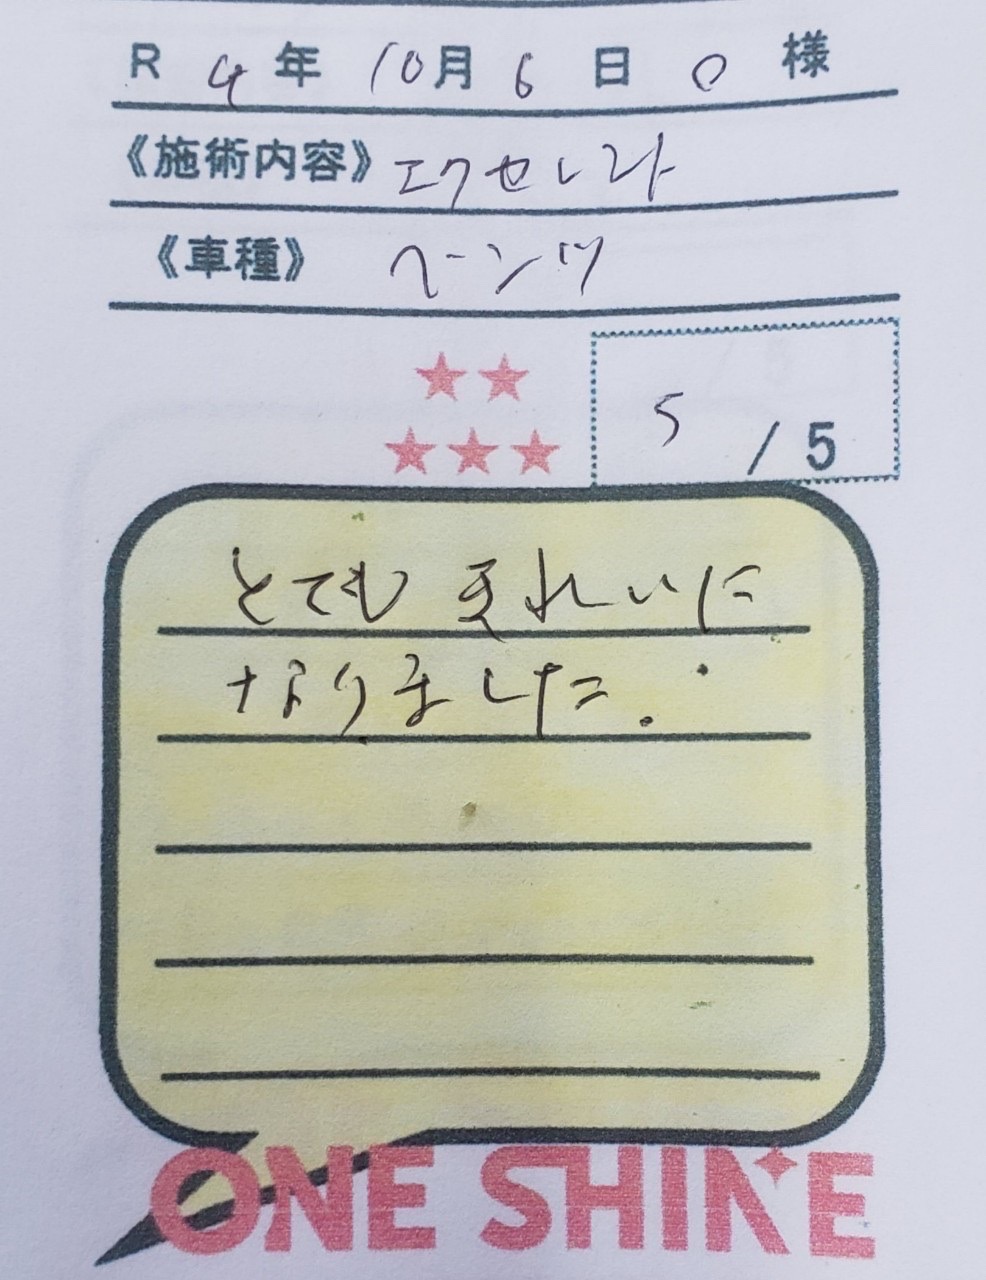 R 4 年 10 月 6 日 O 様
《施術内容》 エクセレント
《車種》 ベンツ
5 / 5
とても きれいに
なりました.
ONE SHINE